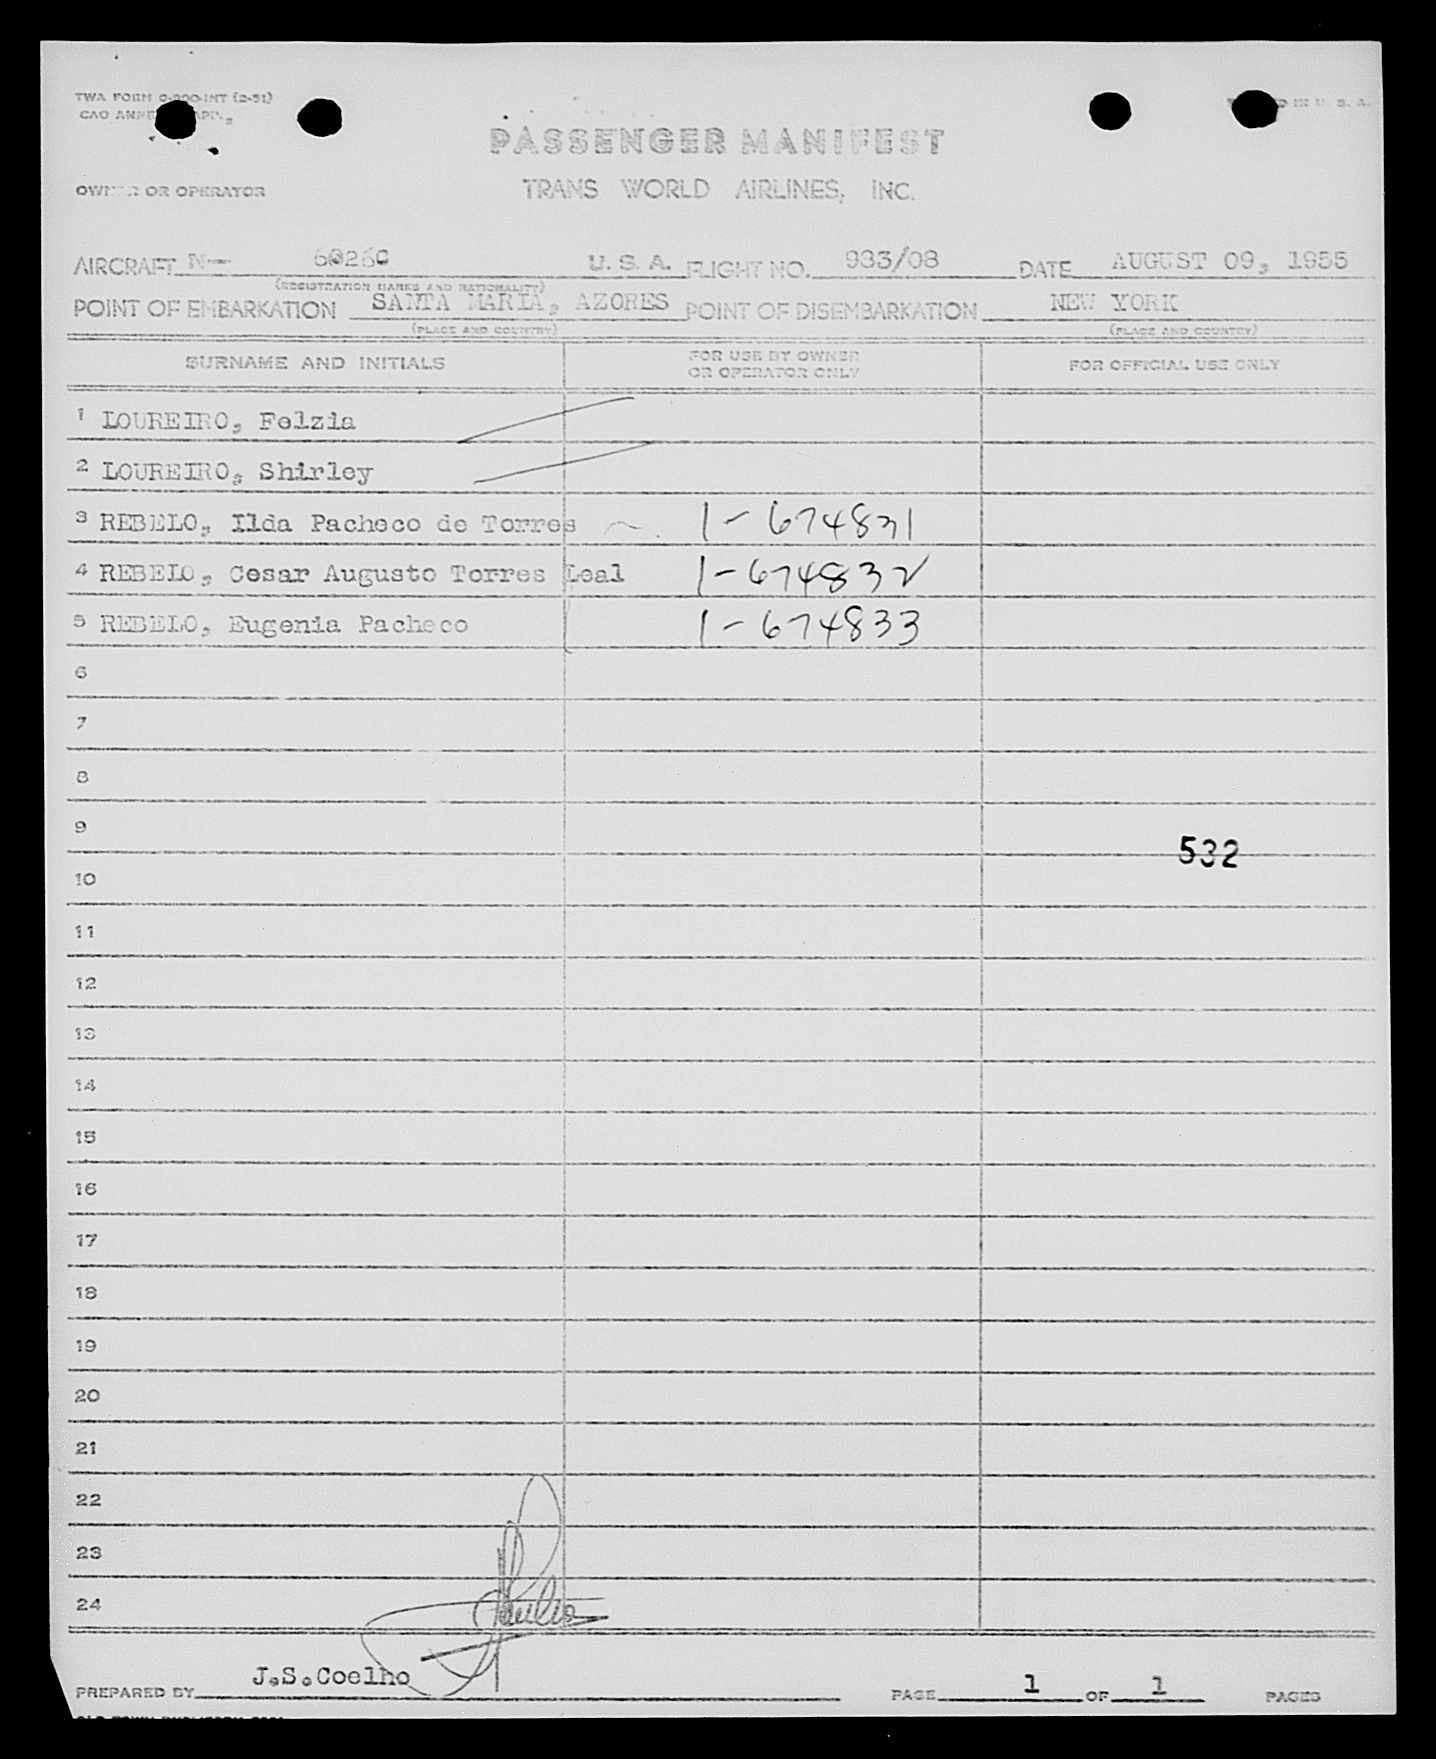 TWA FORM O-200-INT (2-51)
PASSENGER MANIFEST
OWNER OR OPERATOR
TRANS WORLD AIRLINES, INC.
AIRCRAFT N-- 6026C U. S. A. FLIGHT NO. 983/08 DATE AUGUST 09, 1955
(REGISTRATION MARKS AND NATIONALITY)
POINT OF EMBARKATION SANTA MARIA, AZORES POINT OF DISEMBARKATION NEW YORK
(PLACE AND COUNTRY) (PLACE AND COUNTRY)
SURNAME AND INITIALS FOR USE BY OWNER OR OPERATOR ONLY FOR OFFICIAL USE ONLY
1 LOUREIRO, Felzia
2 LOUREIRO, Shirley
3 REBELO, Ilda Pacheco de Torres 1-674831
4 REBELO, Cesar Augusto Torres Leal 1-674832
5 REBELO, Eugenia Pacheco 1-674833
6
7
8
9
532
10
11
12
13
14
15
16
17
18
19
20
21
22
23
24
PREPARED BY J.S.Coelho PAGE 1 OF 1 PAGES